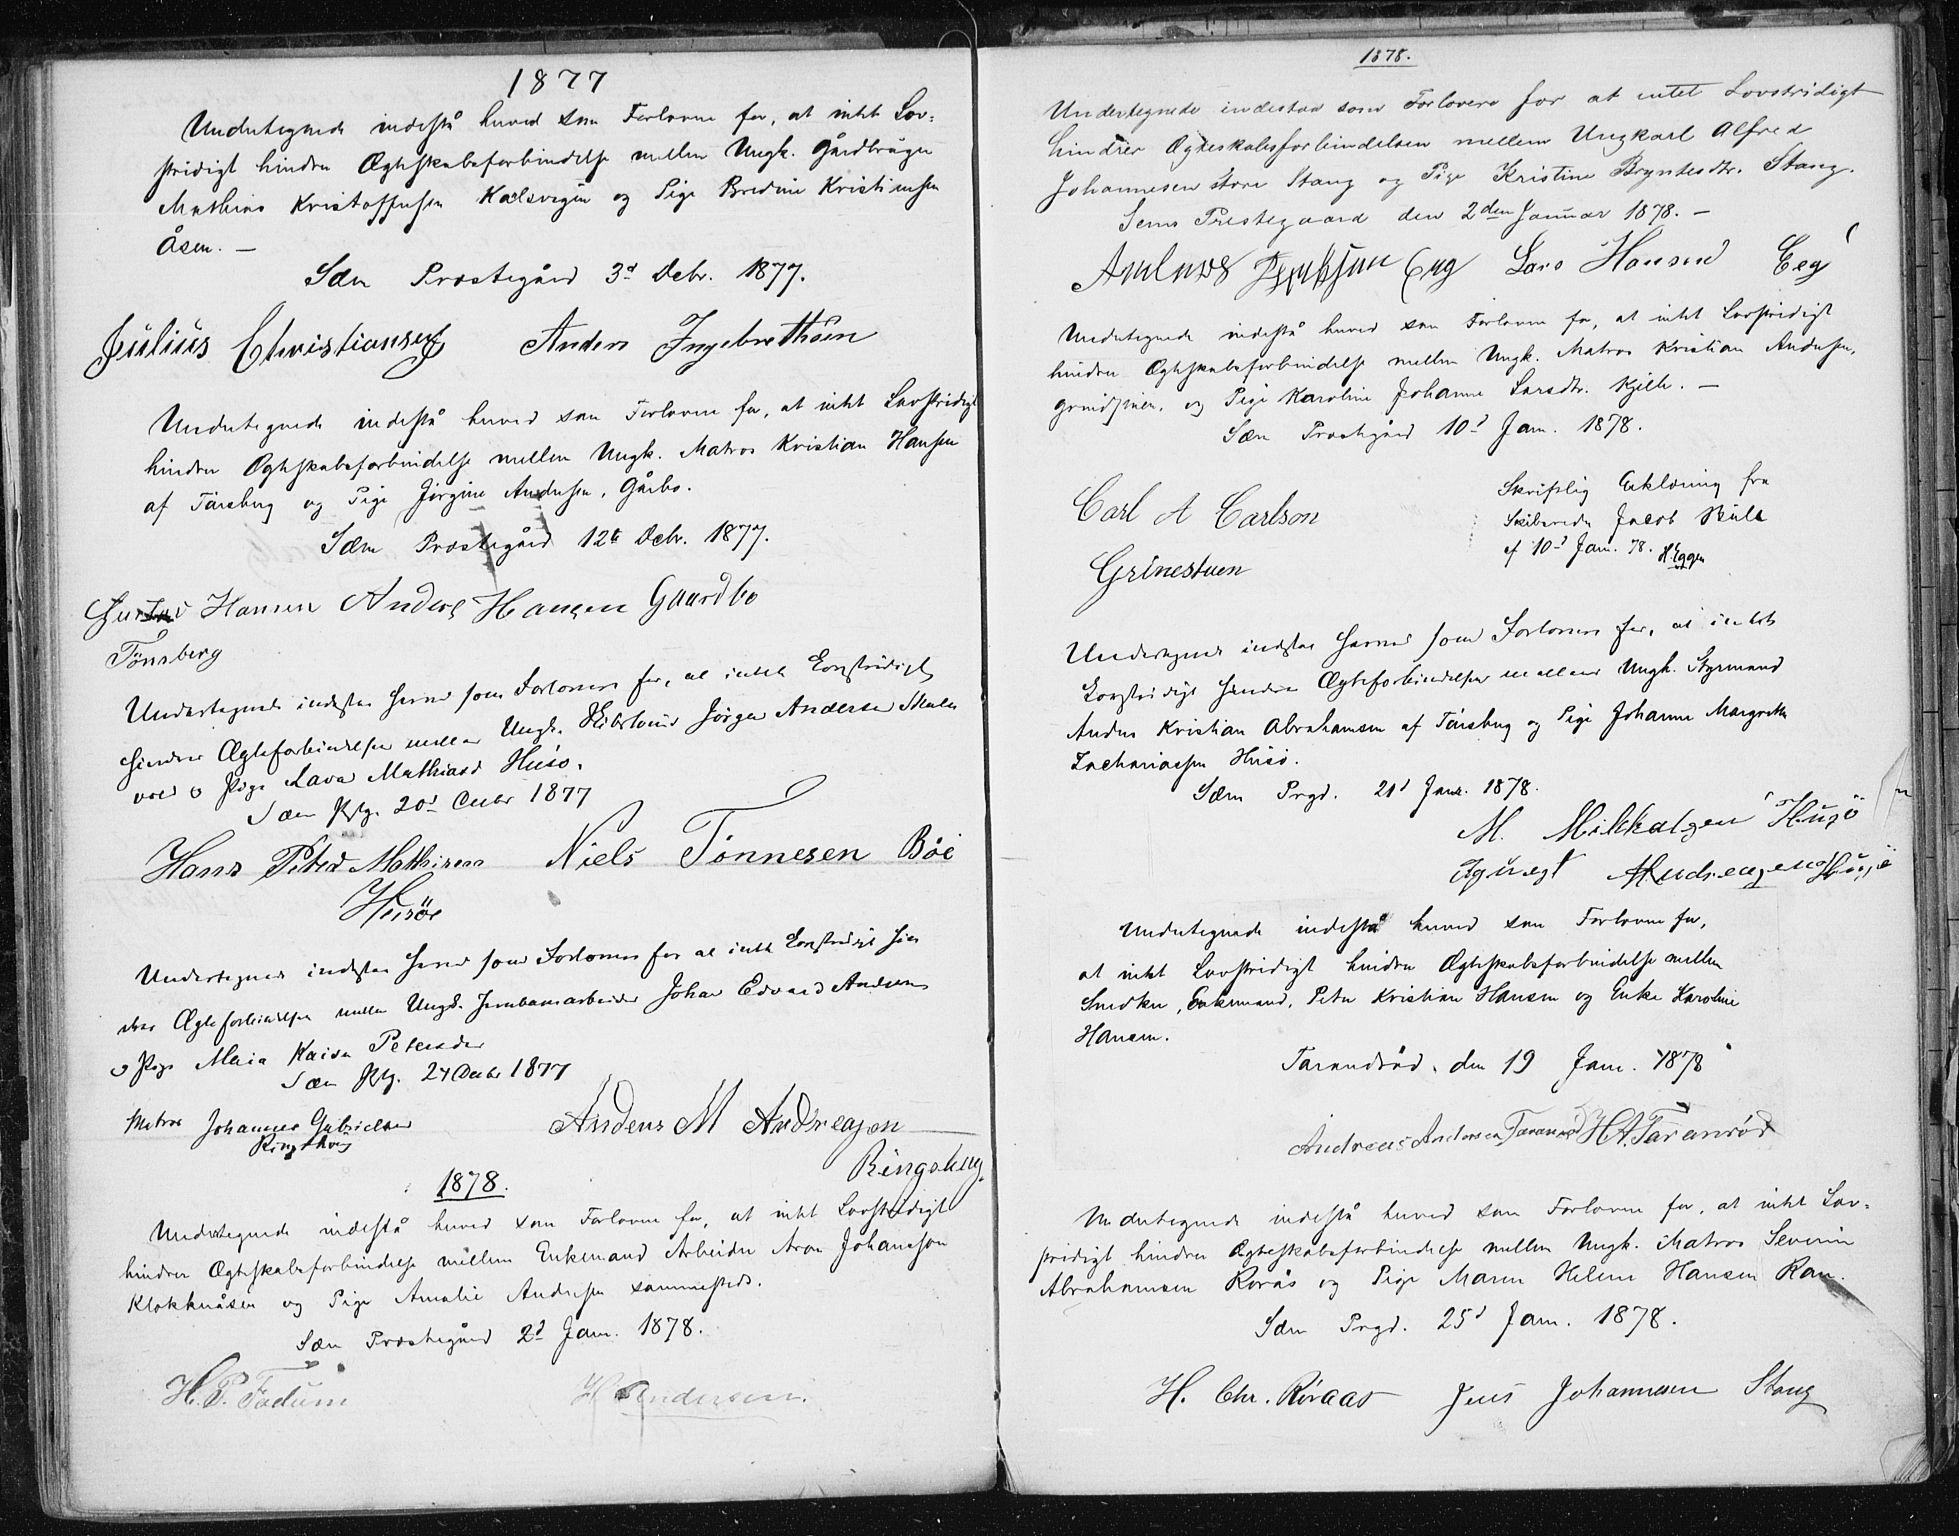 1877
Undertegnede indestå herved som Forlovere for, at intet Lov-
stridigt hindrer Ægteskabsforbindelse mellem Ungk. Gårdbruger
Mathias Kristoffersen Karlsvigen og Pige Bredine Kristiansen
Åsen. —
Sem Præstegård 3d Debr. 1877.
Julius Christiansen Anders Ingebrethsen
Undertegnede indestå herved som Forlovere for, at intet Lovstridigt
hindrer Ægteskabsforbindelse mellem Ungk. Matros Kristian Hansen
af Tönsberg og Pige Jörgine Andersen, Gårbo.
Sem Præstegård 12te Debr. 1877.
Gustav Hansen Anders Hansen Gaardbo
Tönsberg
Undertegnede indestaa herved som Forlovere for, at intet Lovstridigt
hindrer Ægteforbindelse mellem Ungk. Jörgen Andersen
og Pige Lava Mathiasd Husö.
Sem Pstg. 20d Decbr 1877
Hans Peter Mathisen Niels Tönnesen Böe
Husöe
Undertegnede indestaa herved som Forlovere for at intet Lovstridigt hin
drer Ægteforbindelse mellem Ungk. Jernbanearbeider Johan Edvard Andersen
og Pige Maia Kaisa Petersdtr
Sem Pstg. 24 Decbr 1877
Matros Johannes Gabrielsen Anders M Andreasen
Ringshoug Ringshoug.
1878.
Undertegnede indestå herved som Forlovere for, at intet Lovstridigt
hindrer Ægteskabsforbindelse mellem Enkemand Arbeider Aron Johansson
Klokkeråsen og Pige Amalie Andersen sammesteds.
Sem Præstegård 2d Jan. 1878.
H. P. Fadum H. Andersen.
1878.
Undertegnede indestaa som Forlovere for at intet Lovstridigt
hindrer Ægteskabsforbindelsen mellem Ungkarl Alfred
Johannesen store Stang og Pige Kristine Bryntesdtr. Stang.
Sems Prestegaard den 2den Januar 1878. —
Eeg Lars Hansen Eeg
Undertegnede indestå herved som Forlovere for, at intet Lovstridigt
hindrer Ægteskabsforbindelse mellem Ungk. Matros Kristian Andersen,
og Pige Karoline Johanne Larsdtr. —
Sem Præstegård 10d Jan. 1878.
Carl A Carlson
Skriftlig Erklæring fra
Skibsreder Jacob Bull
af 10d Jan. 78. H. Eggen
Grinestuen
Undertegnede indestaa herved som Forlovere for, at intet
Lovstridigt hindrer Ægteforbindelsen mellem Ungk. Styrmand
Anders Kristian Abrahamsen af Tönsberg og Pige Johanne Margrethe
Zachariassen Husö.
Sem Prgd. 21d Janr. 1878.
M. Mikkalsen Husö
August Andreasen Husö
Undertegnede indestå herved som Forlovere for,
at intet Lovstridigt hindrer Ægteskabsforbindelse mellem
Snedker, Enkemand, Peter Kristian Hansen og Enke Karoline
Hansen.
Tarandröd, den 19 Jan. 1878
Andreas Andersen Taranröd H A. Taranröd
Undertegnede indestå herved som Forlovere for, at intet Lov-
stridigt hindrer Ægteskabsforbindelse mellem Ungk. Matros Severin
Abrahamsen Rorås og Pige Maren Helene Hansen Ram.
Sem Prgd. 25d Jan. 1878.
H. Chr. Röraas Jens Johannesen Stang